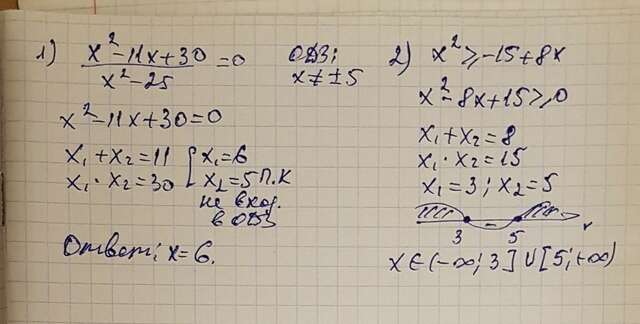 1) (x²-11x+30)/(x²-25) =0 ОДЗ:
x≠±5
x²-11x+30=0
x₁+x₂=11 [ x₁=6
x₁·x₂=30 x₂=5 П.К
не вход.
в ОДЗ
Ответ: x=6.
2) x²≥-15+8x
x²-8x+15≥0
x₁+x₂=8
x₁·x₂=15
x₁=3; x₂=5
+ - +
3 5 x
x∈(-∞;3]∪[5;+∞)